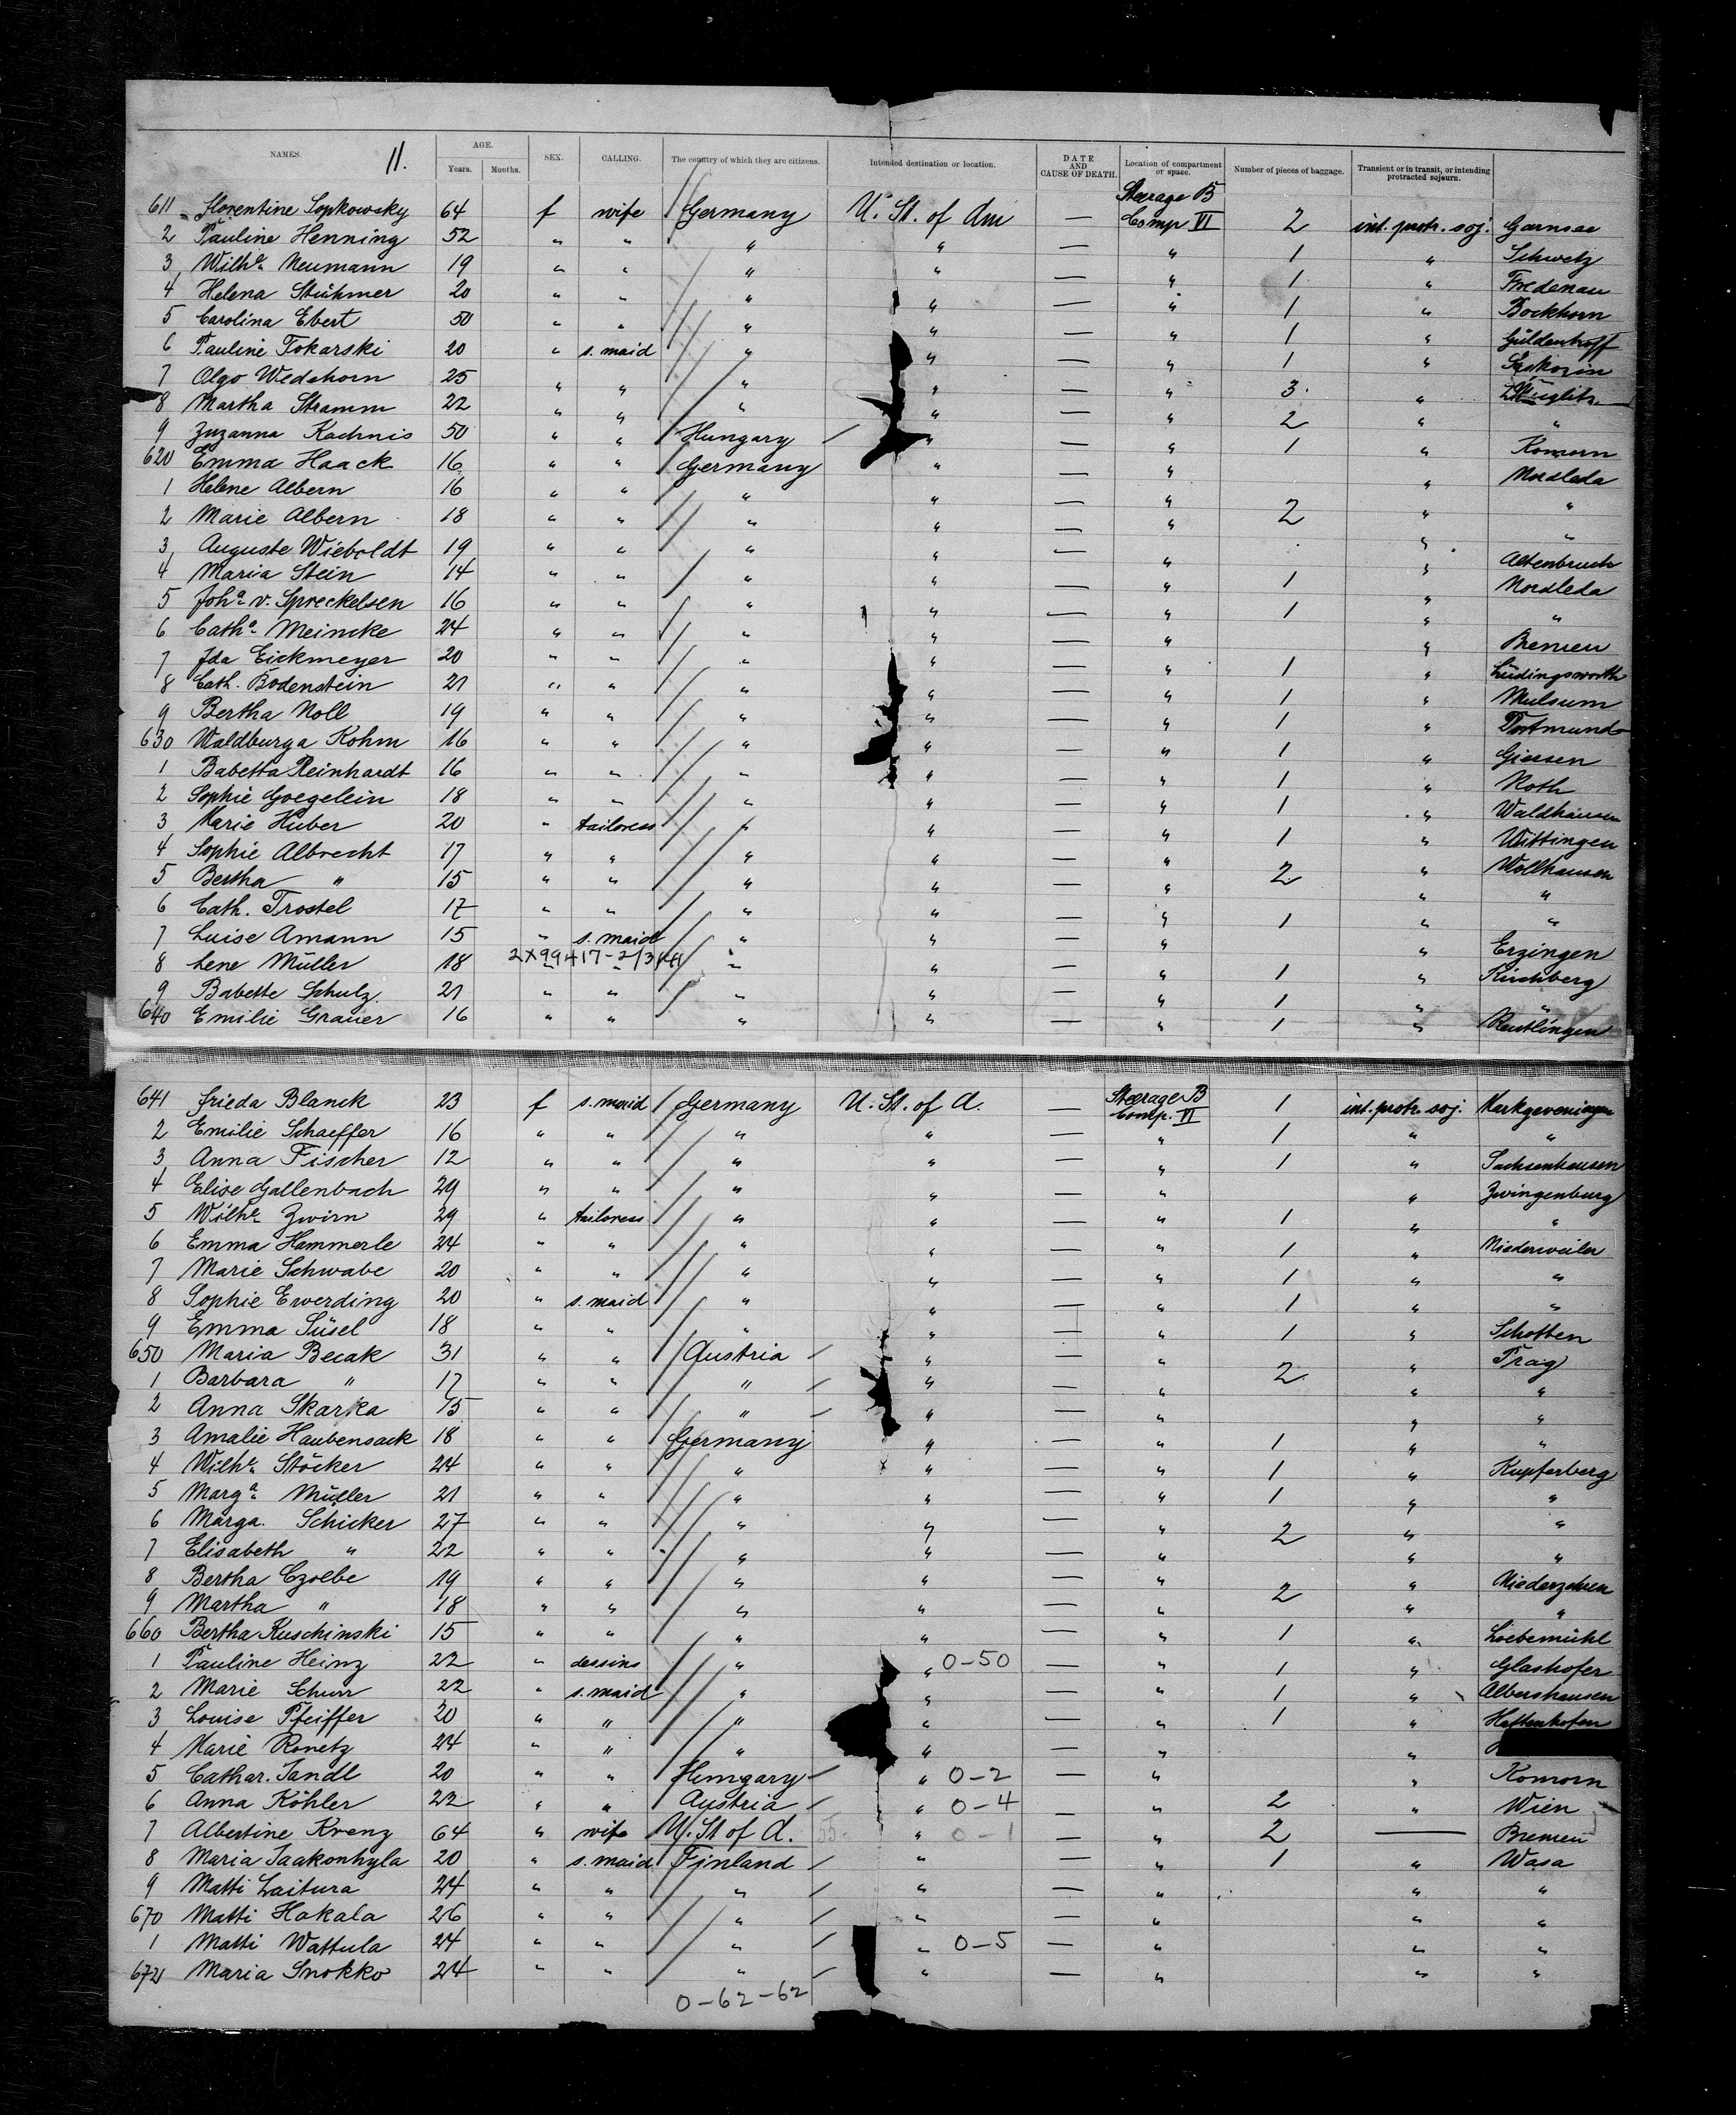 11.
NAMES. AGE. Years. Months. SEX. CALLING. The country of which they are citizens. Intended destination or location. DATE AND CAUSE OF DEATH. Location of compartment or space. Number of pieces of baggage. Transient or in transit, or intending protracted sojourn.
611 Florentine Sopkowsky 64 f wife Germany U. St. of Am — Steerage B Comp VI 2 int. protr. soj. Garnsee
2 Pauline Henning 52 " " " " — " 1 " Schwetz
3 Wilhe. Neumann 19 " " " " — " 1 " Fredenau
4 Helena Stühmer 20 " " " " — " 1 " Bockhorn
5 Carolina Ebert 50 " " " " — " 1 " Güldenhoff
6 Pauline Tokarski 20 " s. maid " " — " 1 "
7 Olga Wedehorn 25 " " " " — " 3 "
8 Martha Stramm 22 " " " " — " 2 " "
9 Zuzanna Kachnis 50 " " Hungary " — " 1 " Komorn
620 Emma Haack 16 " " Germany " — " " Nordleda
1 Helene Albern 16 " " " " — " " "
2 Marie Albern 18 " " " " — " 2 " "
3 Auguste Wieboldt 19 " " " " — " " Altenbruch
4 Maria Stein 14 " " " " — " 1 " Nordleda
5 Joha. v. Spreckelsen 16 " " " " — " 1 " "
6 Catha. Meincke 24 " " " " — " " Bremen
7 Ida Eickmeyer 20 " " " " — " 1 " Lüdingsworth
8 Cath. Bodenstein 21 " " " " — " 1 " Mulsum
9 Bertha Noll 19 " " " " — " 1 " Dortmund
630 Waldburga Kohm 16 " " " " — " 1 " Giessen
1 Babetta Reinhardt 16 " " " " — " 1 " Roth
2 Sophie Goegelein 18 " " " " — " 1 " Waldhausen
3 Marie Huber 20 " tailoress " " — " 1 " Wittingen
4 Sophie Albrecht 17 " " " " — " " Wollhausen
5 Bertha " 15 " " " " — " 2 " "
6 Cath. Trostel 17 " " " " — " 1 " "
7 Luise Amann 15 " s. maid " " — " " Erzingen
8 Lene Müller 18 " " " " — " 1 " Kirchberg
9 Babette Schulz 21 " " " " — " 1 " "
640 Emilie Grauer 16 " " " " — " 1 " Reutlingen
641 Frieda Blanck 23 f s. maid Germany U. St. of A. — Steerage B Comp. VI 1 int. protr. soj. Markgroeningen
2 Emilie Schaeffer 16 " " " " — " 1 " "
3 Anna Fischer 12 " " " " — " 1 " Sachsenhausen
4 Elise Gallenbach 29 " " " " — " " Zwingenburg
5 Wilhe. Zwirn 29 " tailoress " " — " 1 " "
6 Emma Hammerle 24 " " " " — " 1 " Niederweiler
7 Marie Schwabe 20 " " " " — " 1 " "
8 Sophie Ewerding 20 " s. maid " " — " 1 " "
9 Emma Süsel 18 " " " " — " 1 " Schotten
650 Maria Becak 31 " " Austria " — " 2 " Prag
1 Barbara " 17 " " " " — " " "
2 Anna Skarka 15 " " " " — " " "
3 Amalie Haubensack 18 " " Germany " — " 1 " "
4 Wilhe. Stöcker 24 " " " " — " 1 " Kupferberg
5 Marga. Müller 21 " " " " — " 1 " "
6 Marga. Schicker 27 " " " " — " 2 " "
7 Elisabeth " 22 " " " " — " " "
8 Bertha Czolbe 19 " " " " — " 2 " Niederzehren
9 Martha " 18 " " " " — " " "
660 Bertha Kuschinski 15 " " " " — " 1 " Loebemühl
1 Pauline Heinz 22 " " " 0-50 — " 1 " Glashofer
2 Marie Schurr 22 " s. maid " " — " 1 " Albershausen
3 Louise Pfeiffer 20 " " " " — " 1 " Hattenhofen
4 Marie Ronetz 24 " " " " — " "
5 Cathar. Jandl 20 " " Hungary " 0-2 — " " Komorn
6 Anna Köhler 22 " " Austria " 0-4 — " 2 " Wien
7 Albertine Krenz 64 " wife U. St of A. " 0-1 — " 2 — Bremen
8 Maria Jaakonhyla 20 " s. maid Finland " — " 1 " Wasa
9 Matti Laitura 24 " " " " — " " "
670 Matti Hakala 26 " " " " — " " "
1 Matti Wattula 24 " " " " 0-5 — " " "
672 Maria Snokko 24 " " " " — " " "
0-62-62